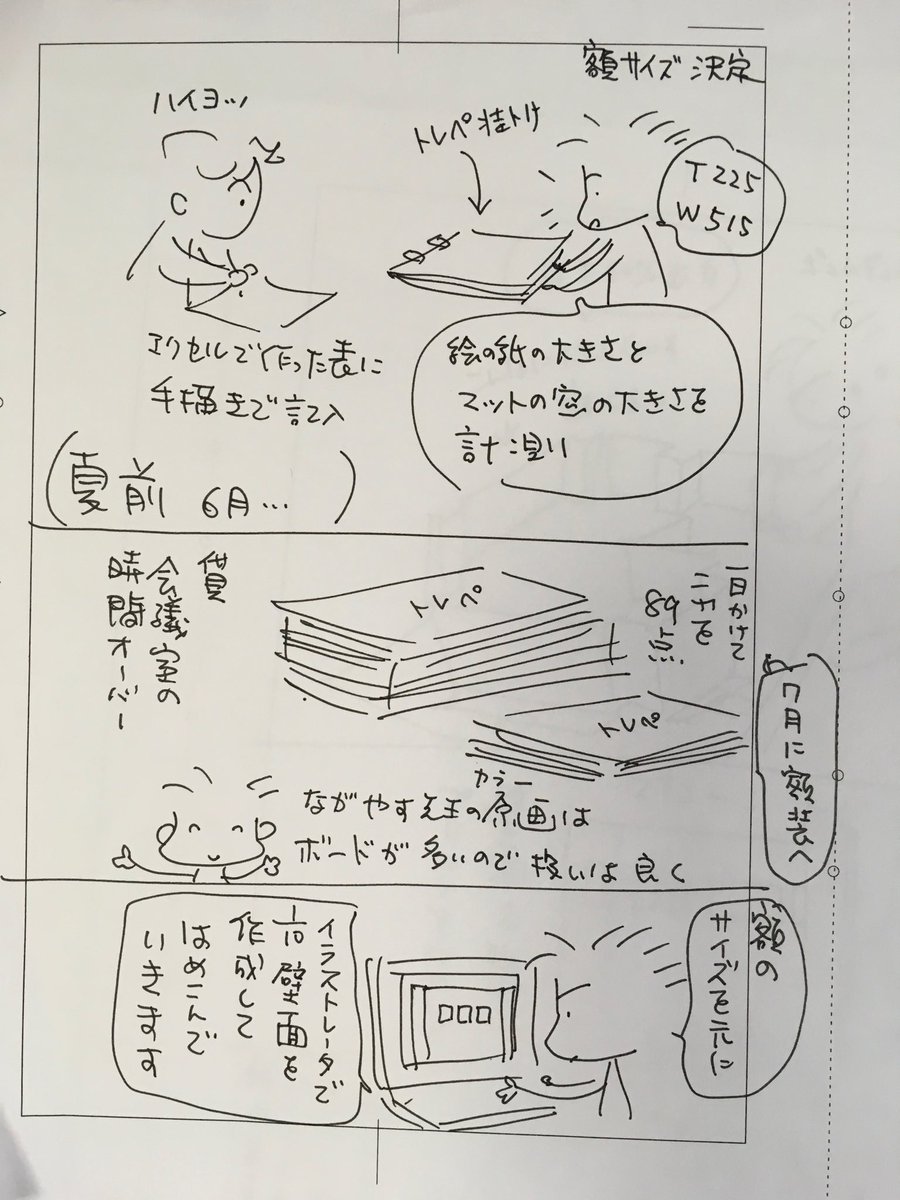 額サイズ 決定
T225
W515
トレペ掛け
ハイヨッ
絵の紙の大きさと
マットの窓の大きさを
計測
エクセルで作った表に
手描きで記入
(夏前 6月…)
一日かけて
89点
トレペ
トレペ
貸
会議室の
時間オーバー
7月に額装へ
カラー
ながやす先生の原画は
ボードが多いので 扱いは良く
額の
サイズを元に
イラストレータで
1/10 壁面を
作成して
はめこんで
いきます